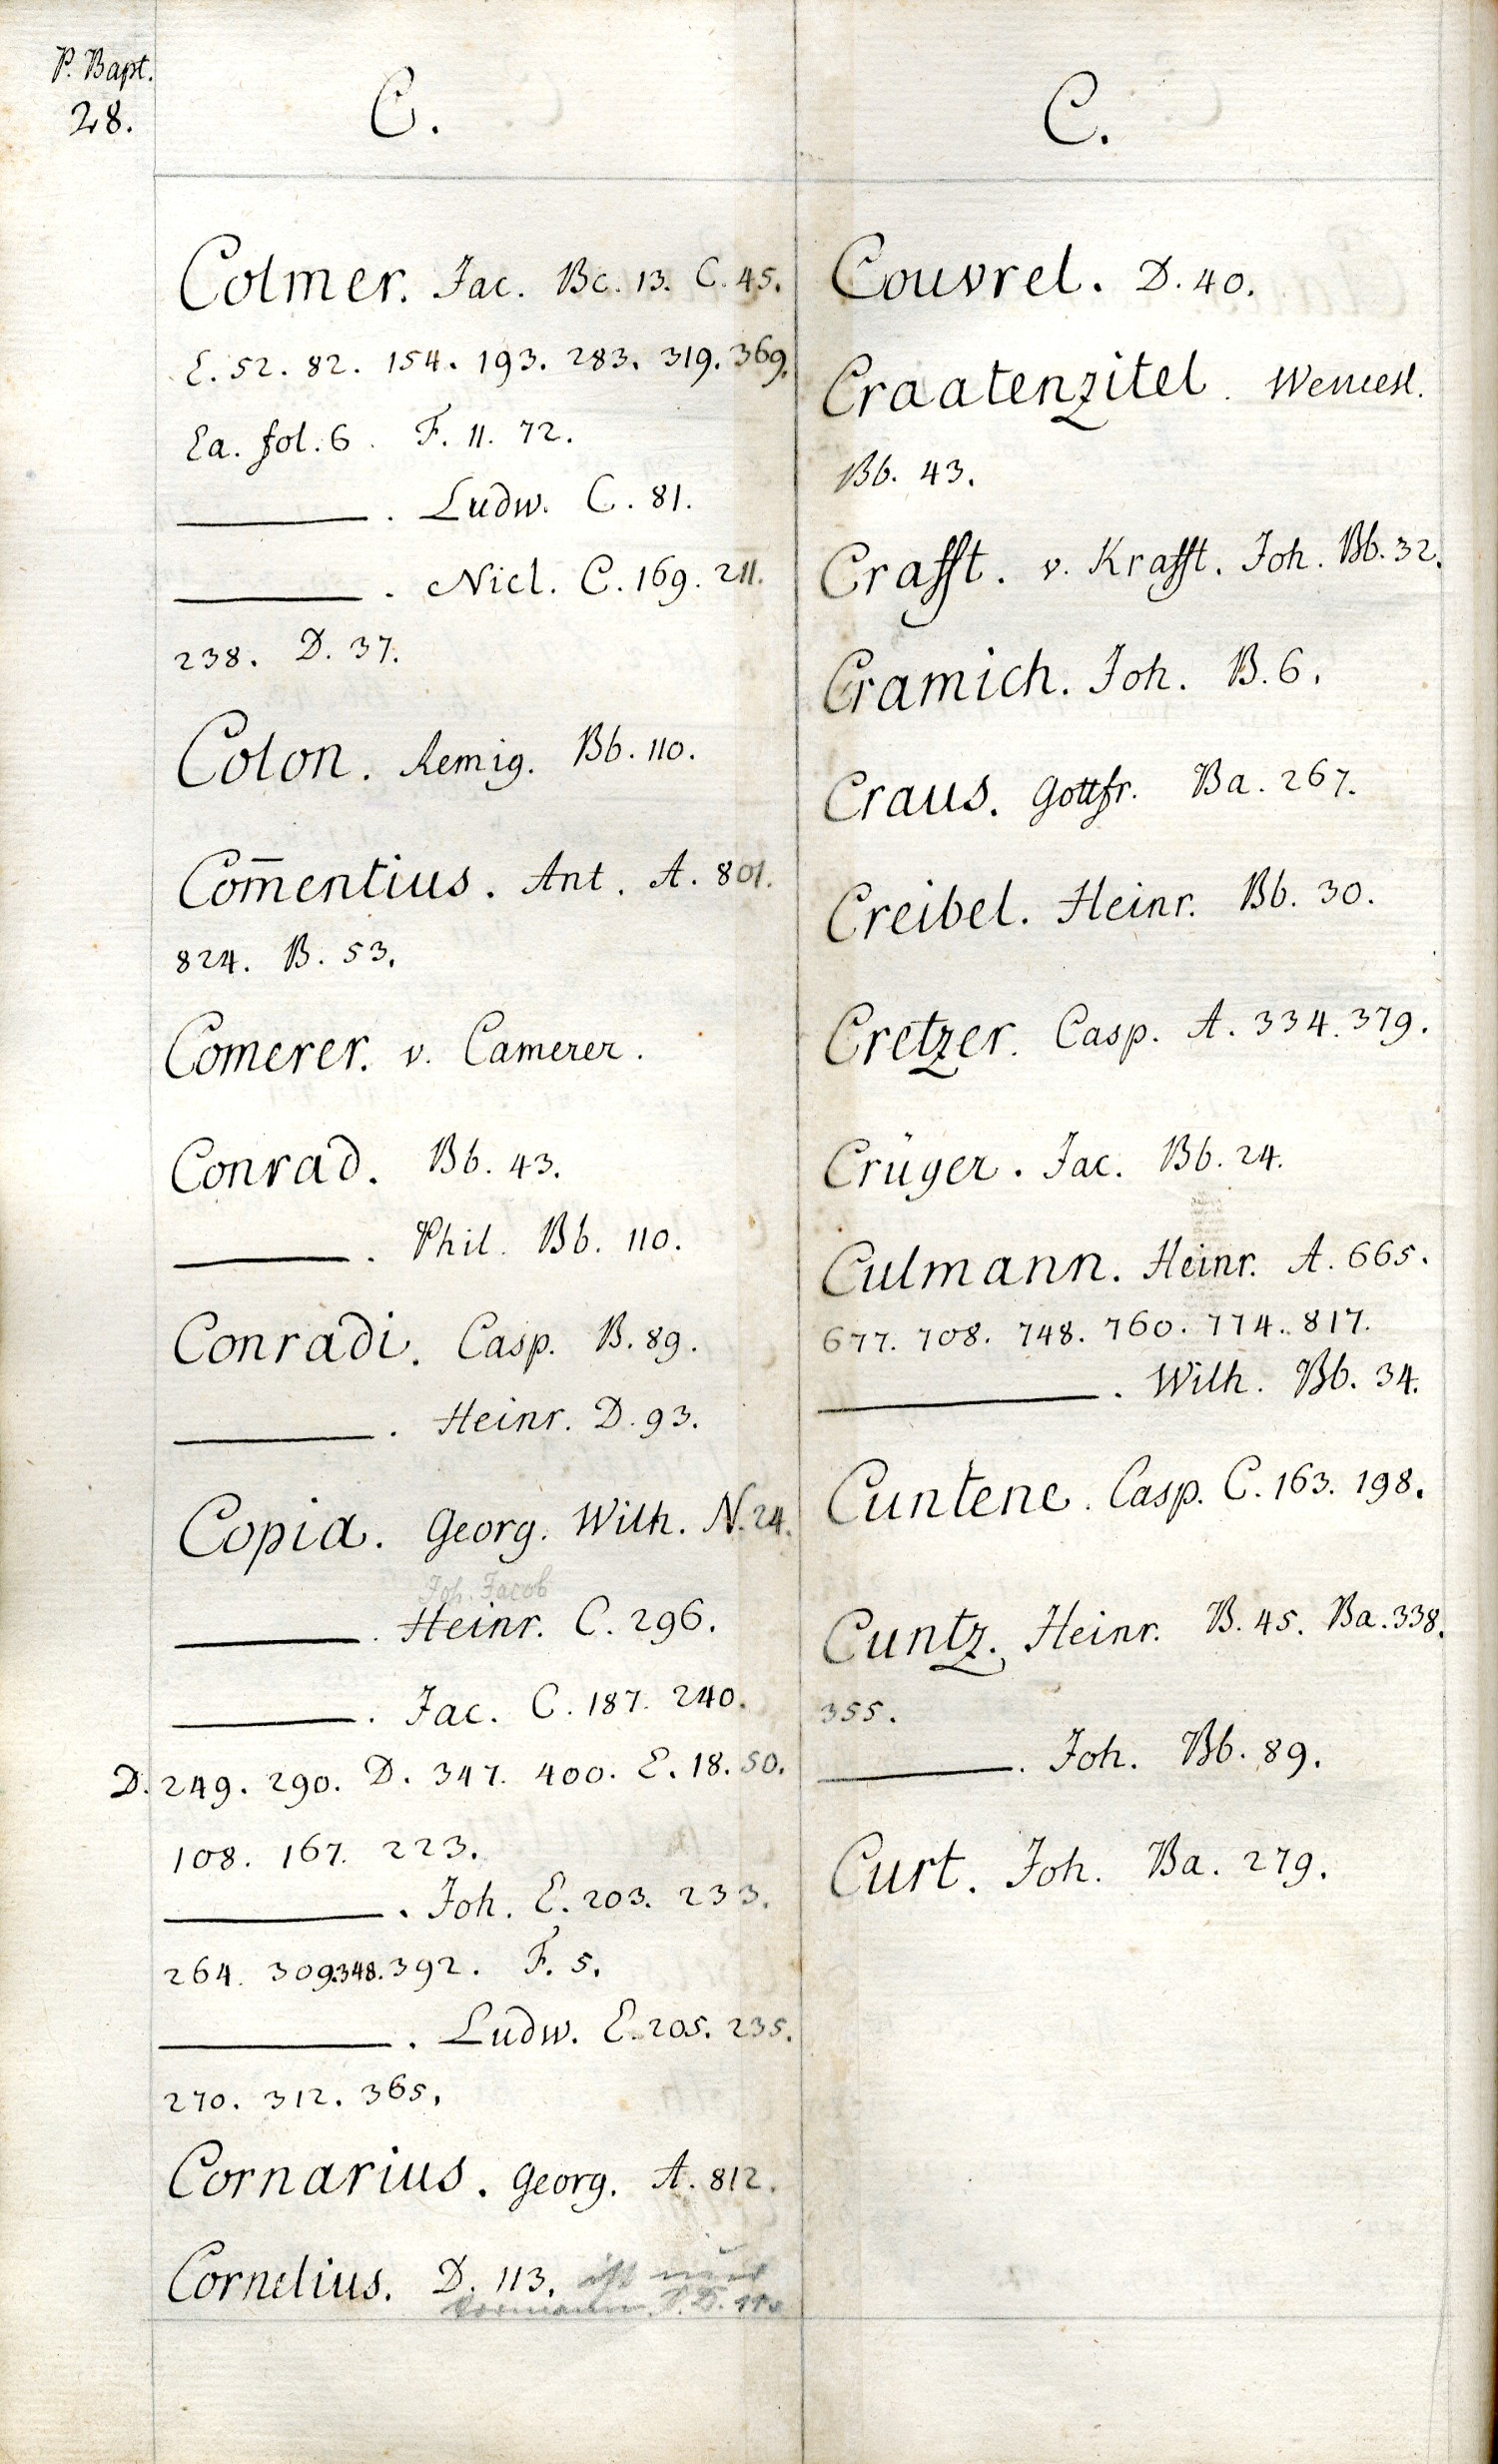 P. Bapt.
28.
C.
Colmer. Jac. Bc. 13. C. 45.
E. 52. 82. 154. 193. 283. 319. 369.
Ea. fol. 6. F. 11. 72.
———. Ludw. C. 81.
———. Nicl. C. 169. 211.
238. D. 37.
Colon. Remig. Bb. 110.
Com̄entius. Ant. A. 801.
824. B. 53.
Comerer. v. Camerer.
Conrad. Bb. 43.
———. Phil. Bb. 110.
Conradi. Casp. B. 89.
———. Heinr. D. 93.
Copia. Georg. Wilh. N. 24.
Joh. Jacob
———. Heinr. C. 296.
———. Jac. C. 187. 240.
D. 249. 290. D. 347. 400. E. 18. 50.
108. 167. 223.
———. Joh. E. 203. 233.
264. 309. 348. 392. F. 5.
———. Ludw. E. 205. 235.
270. 312. 365.
Cornarius. Georg. A. 812.
Cornelius. D. 113. ist nur
C.
Couvrel. D. 40.
Craatenzitel. Wencesl.
Bb. 43.
Crafft. v. Krafft. Joh. Bb. 32.
Cramich. Joh. B. 6.
Craus. Gottfr. Ba. 267.
Creibel. Heinr. Bb. 30.
Cretzer. Casp. A. 334. 379.
Crüger. Jac. Bb. 24.
Culmann. Heinr. A. 665.
677. 708. 748. 760. 774. 817.
———. Wilh. Bb. 34.
Cuntene. Casp. C. 163. 198.
Cuntz. Heinr. B. 45. Ba. 338.
355.
———. Joh. Bb. 89.
Curt. Joh. Ba. 279.